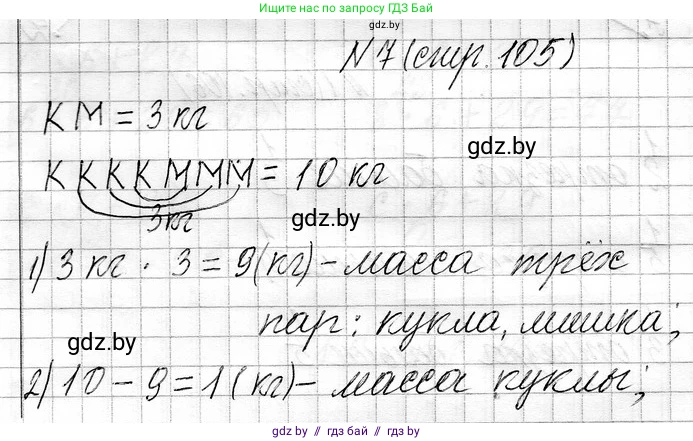 Ищите нас по запросу ГДЗ Бай
gdz.by
N 7 (стр. 105)
К М = 3 кг
gdz.by
К К К К М М М = 10 кг
3кг
gdz.by
1) 3 кг · 3 = 9 (кг) - масса трёх
пар: кукла, мишка;
gdz.by
2) 10 - 9 = 1 (кг) - масса куклы;
gdz.by // гдз бай // гдз by